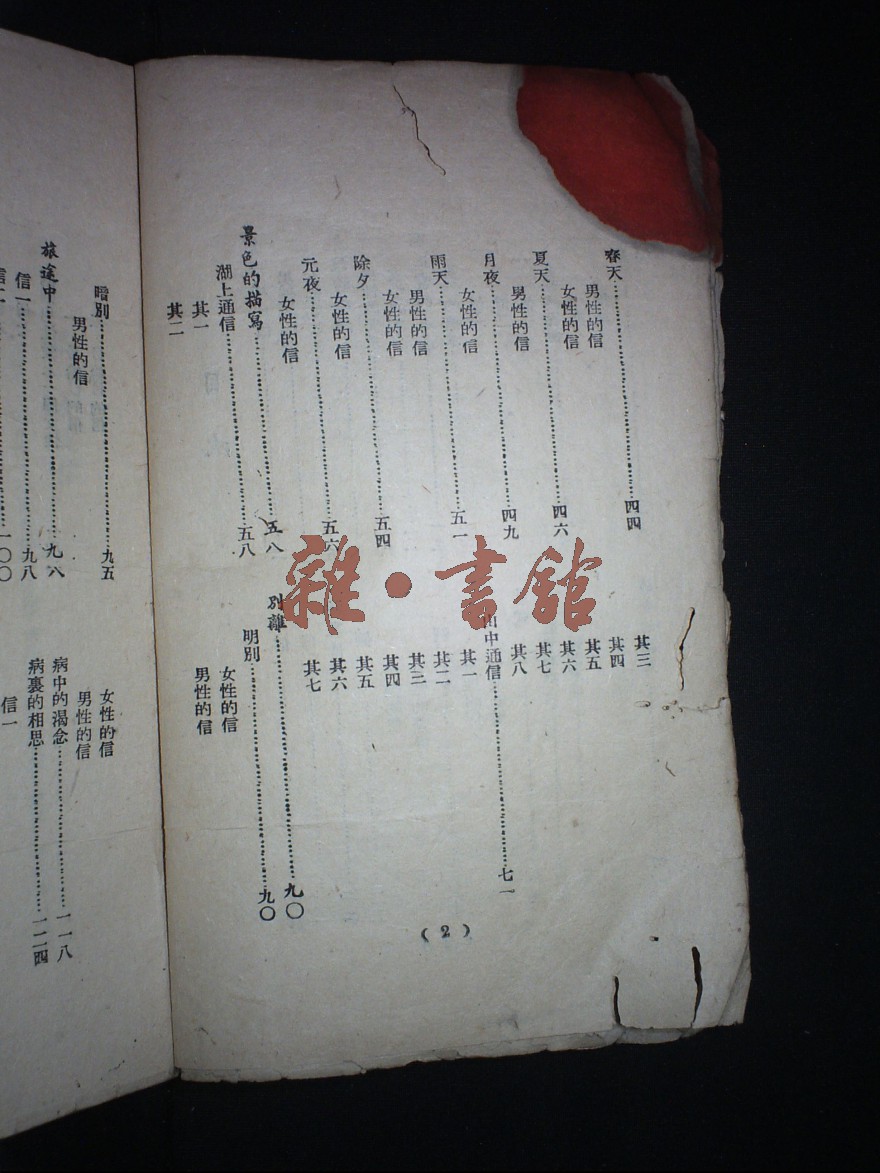 春天……四四
男性的信
女性的信
夏天……四六
男性的信
女性的信
月夜……四九
女性的信
雨天……五一
男性的信
女性的信
除夕……五四
女性的信
元夜……五六
女性的信
景色的描寫……五八
湖上通信……五八
其一
其二
其三
其四
其五
其六
其七
其八
山中通信……七一
其一
其二
其三
其四
其五
其六
其七
別離……九〇
明別……九〇
女性的信
男性的信
(2)
暗別……九五
男性的信
旅途中……九八
信一……九八
信二……一〇〇
女性的信
男性的信
病中的渴念……一一八
病裏的相思……一二四
信一
雜·書館